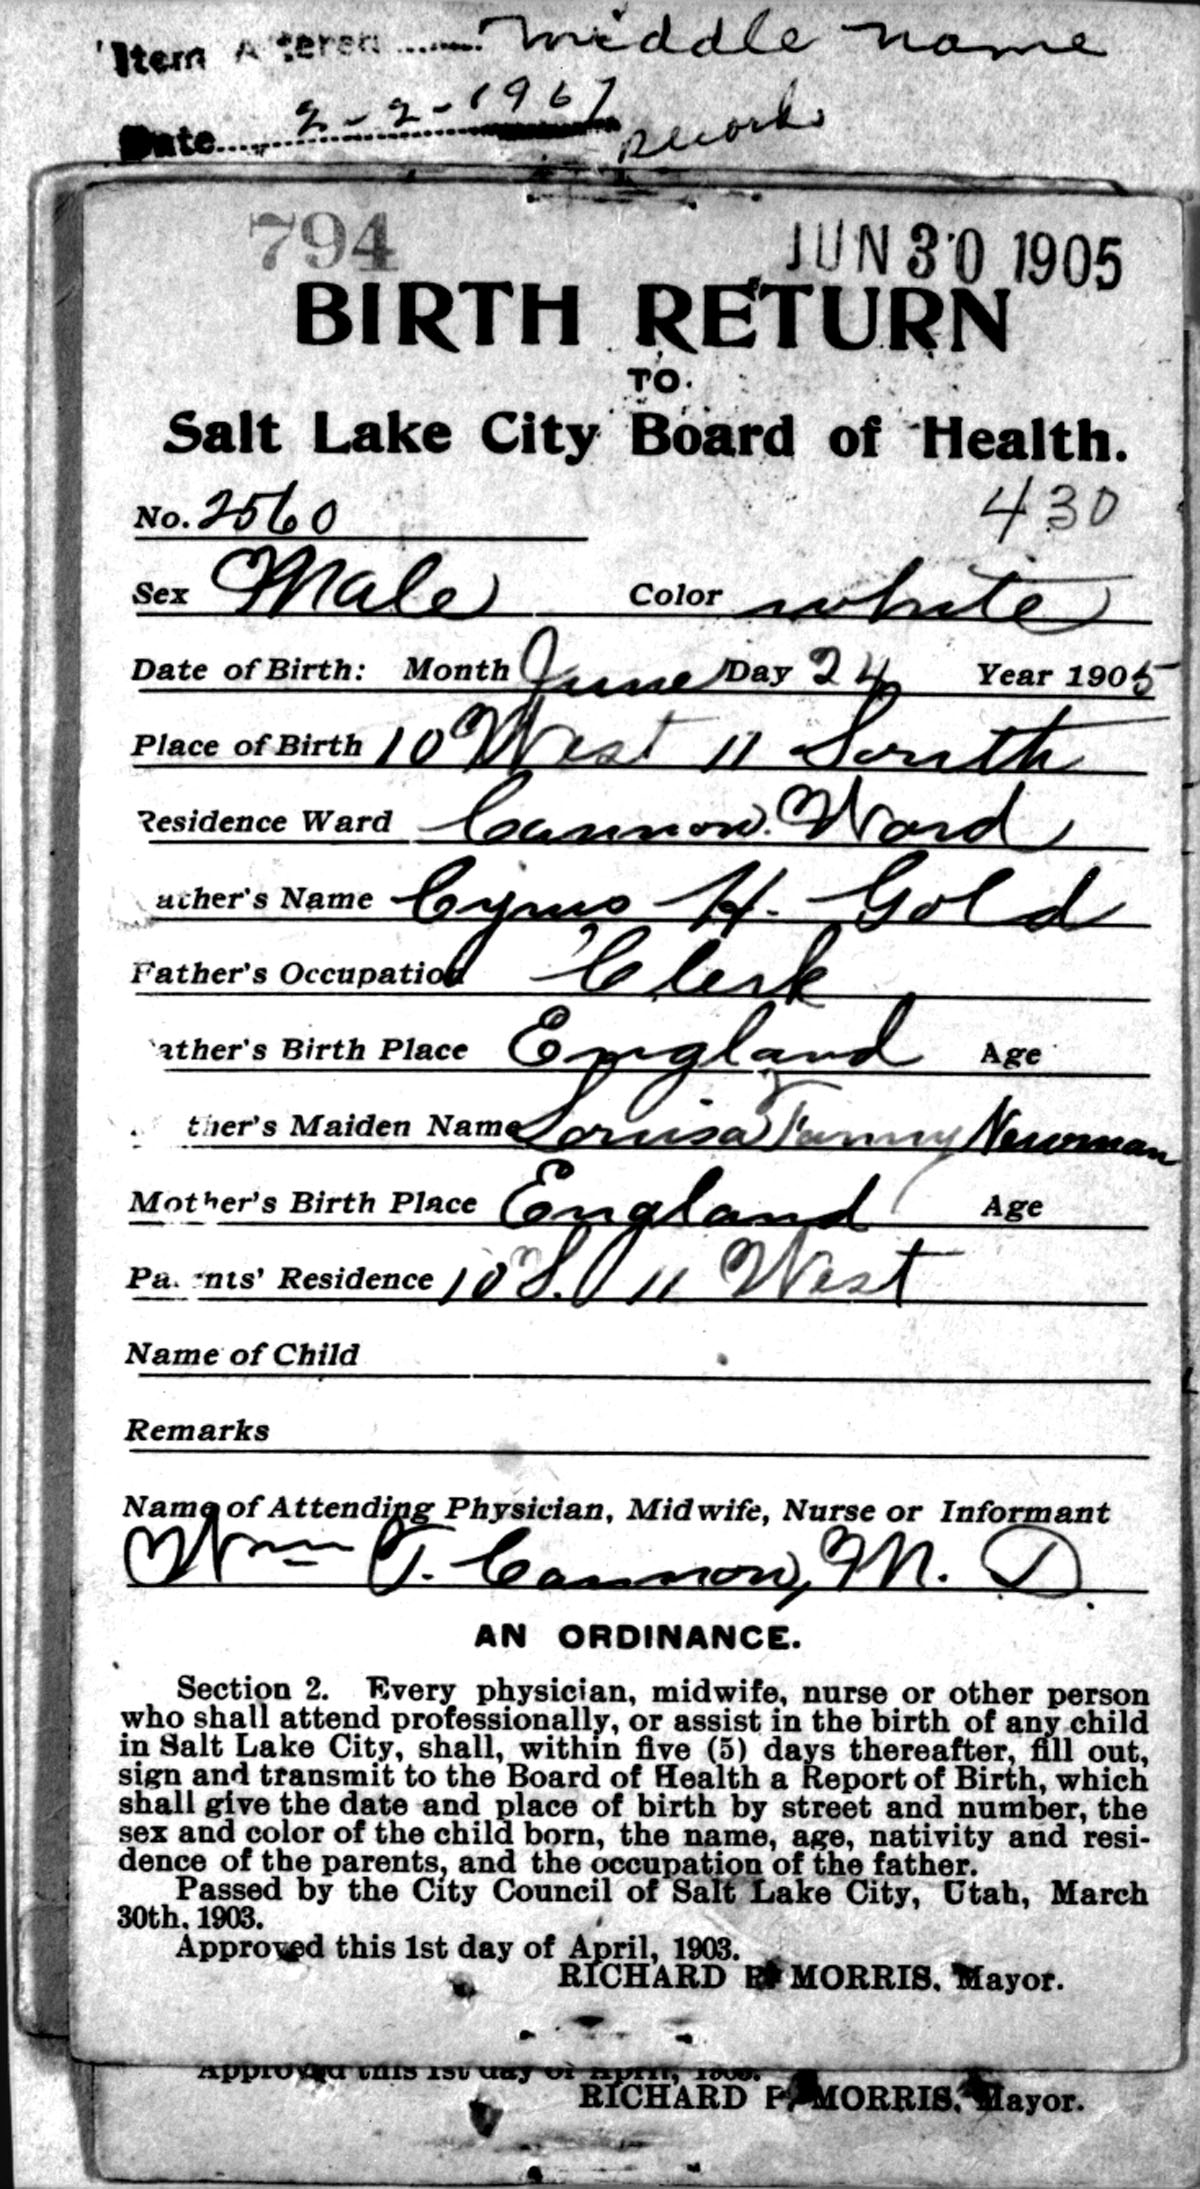 Item Altered ........ Middle name
Date........ 2-2-1967 records
794 JUN 30 1905
BIRTH RETURN
TO
Salt Lake City Board of Health.
No. 2560 430
Sex Male Color white
Date of Birth: Month June Day 24 Year 1905
Place of Birth 10 West 11 South
Residence Ward Cannon Ward
ather's Name Cyrus H. Gold
Father's Occupation Clerk
ather's Birth Place England Age
ther's Maiden Name Louisa Fanny Newman
Mother's Birth Place England Age
Pa nts' Residence 10 S. 11 West
Name of Child
Remarks
Name of Attending Physician, Midwife, Nurse or Informant
Wm T. Cannon, M. D.
AN ORDINANCE.
Section 2. Every physician, midwife, nurse or other person
who shall attend professionally, or assist in the birth of any child
in Salt Lake City, shall, within five (5) days thereafter, fill out,
sign and transmit to the Board of Health a Report of Birth, which
shall give the date and place of birth by street and number, the
sex and color of the child born, the name, age, nativity and resi-
dence of the parents, and the occupation of the father.
Passed by the City Council of Salt Lake City, Utah, March
30th, 1903.
Approved this 1st day of April, 1903.
RICHARD P. MORRIS, Mayor.
Approved this 1st day of April, 1903.
RICHARD P. MORRIS, Mayor.